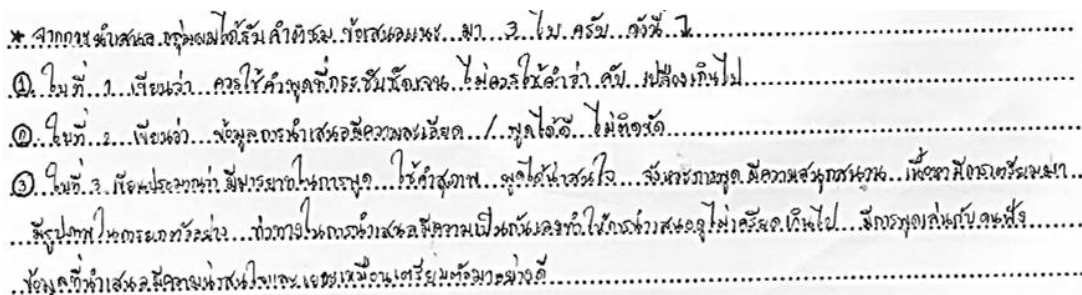 * จากการนำเสนอ กลุ่มผมได้รับคำติชม ข้อเสนอแนะ มา 3 ใบ ครับ ดังนี้ ↴
① ใบที่ 1 เขียนว่า ควรใช้คำพูดที่กระชับชัดเจน ไม่ควรใช้คำว่า คับ เปลืองเกินไป
② ใบที่ 2 เขียนว่า ข้อมูลการนำเสนอมีความละเอียด / พูดได้ดี ไม่ติดขัด
③ ใบที่ 3 เขียนประมาณว่า มีมารยาทในการพูด ใช้คำสุภาพ พูดได้น่าสนใจ จังหวะการพูด มีความสนุกสนาน เนื้อหามีการเตรียมมา
มีรูปภาพในการยกตัวอย่าง ท่าทางในการนำเสนอมีความเป็นกันเองทำให้การนำเสนอดูไม่เครียดเกินไป มีการพูดเล่นกับคนฟัง
ข้อมูลที่นำเสนอมีความน่าสนใจและเยอะเหมือนเตรียมตัวมาอย่างดี